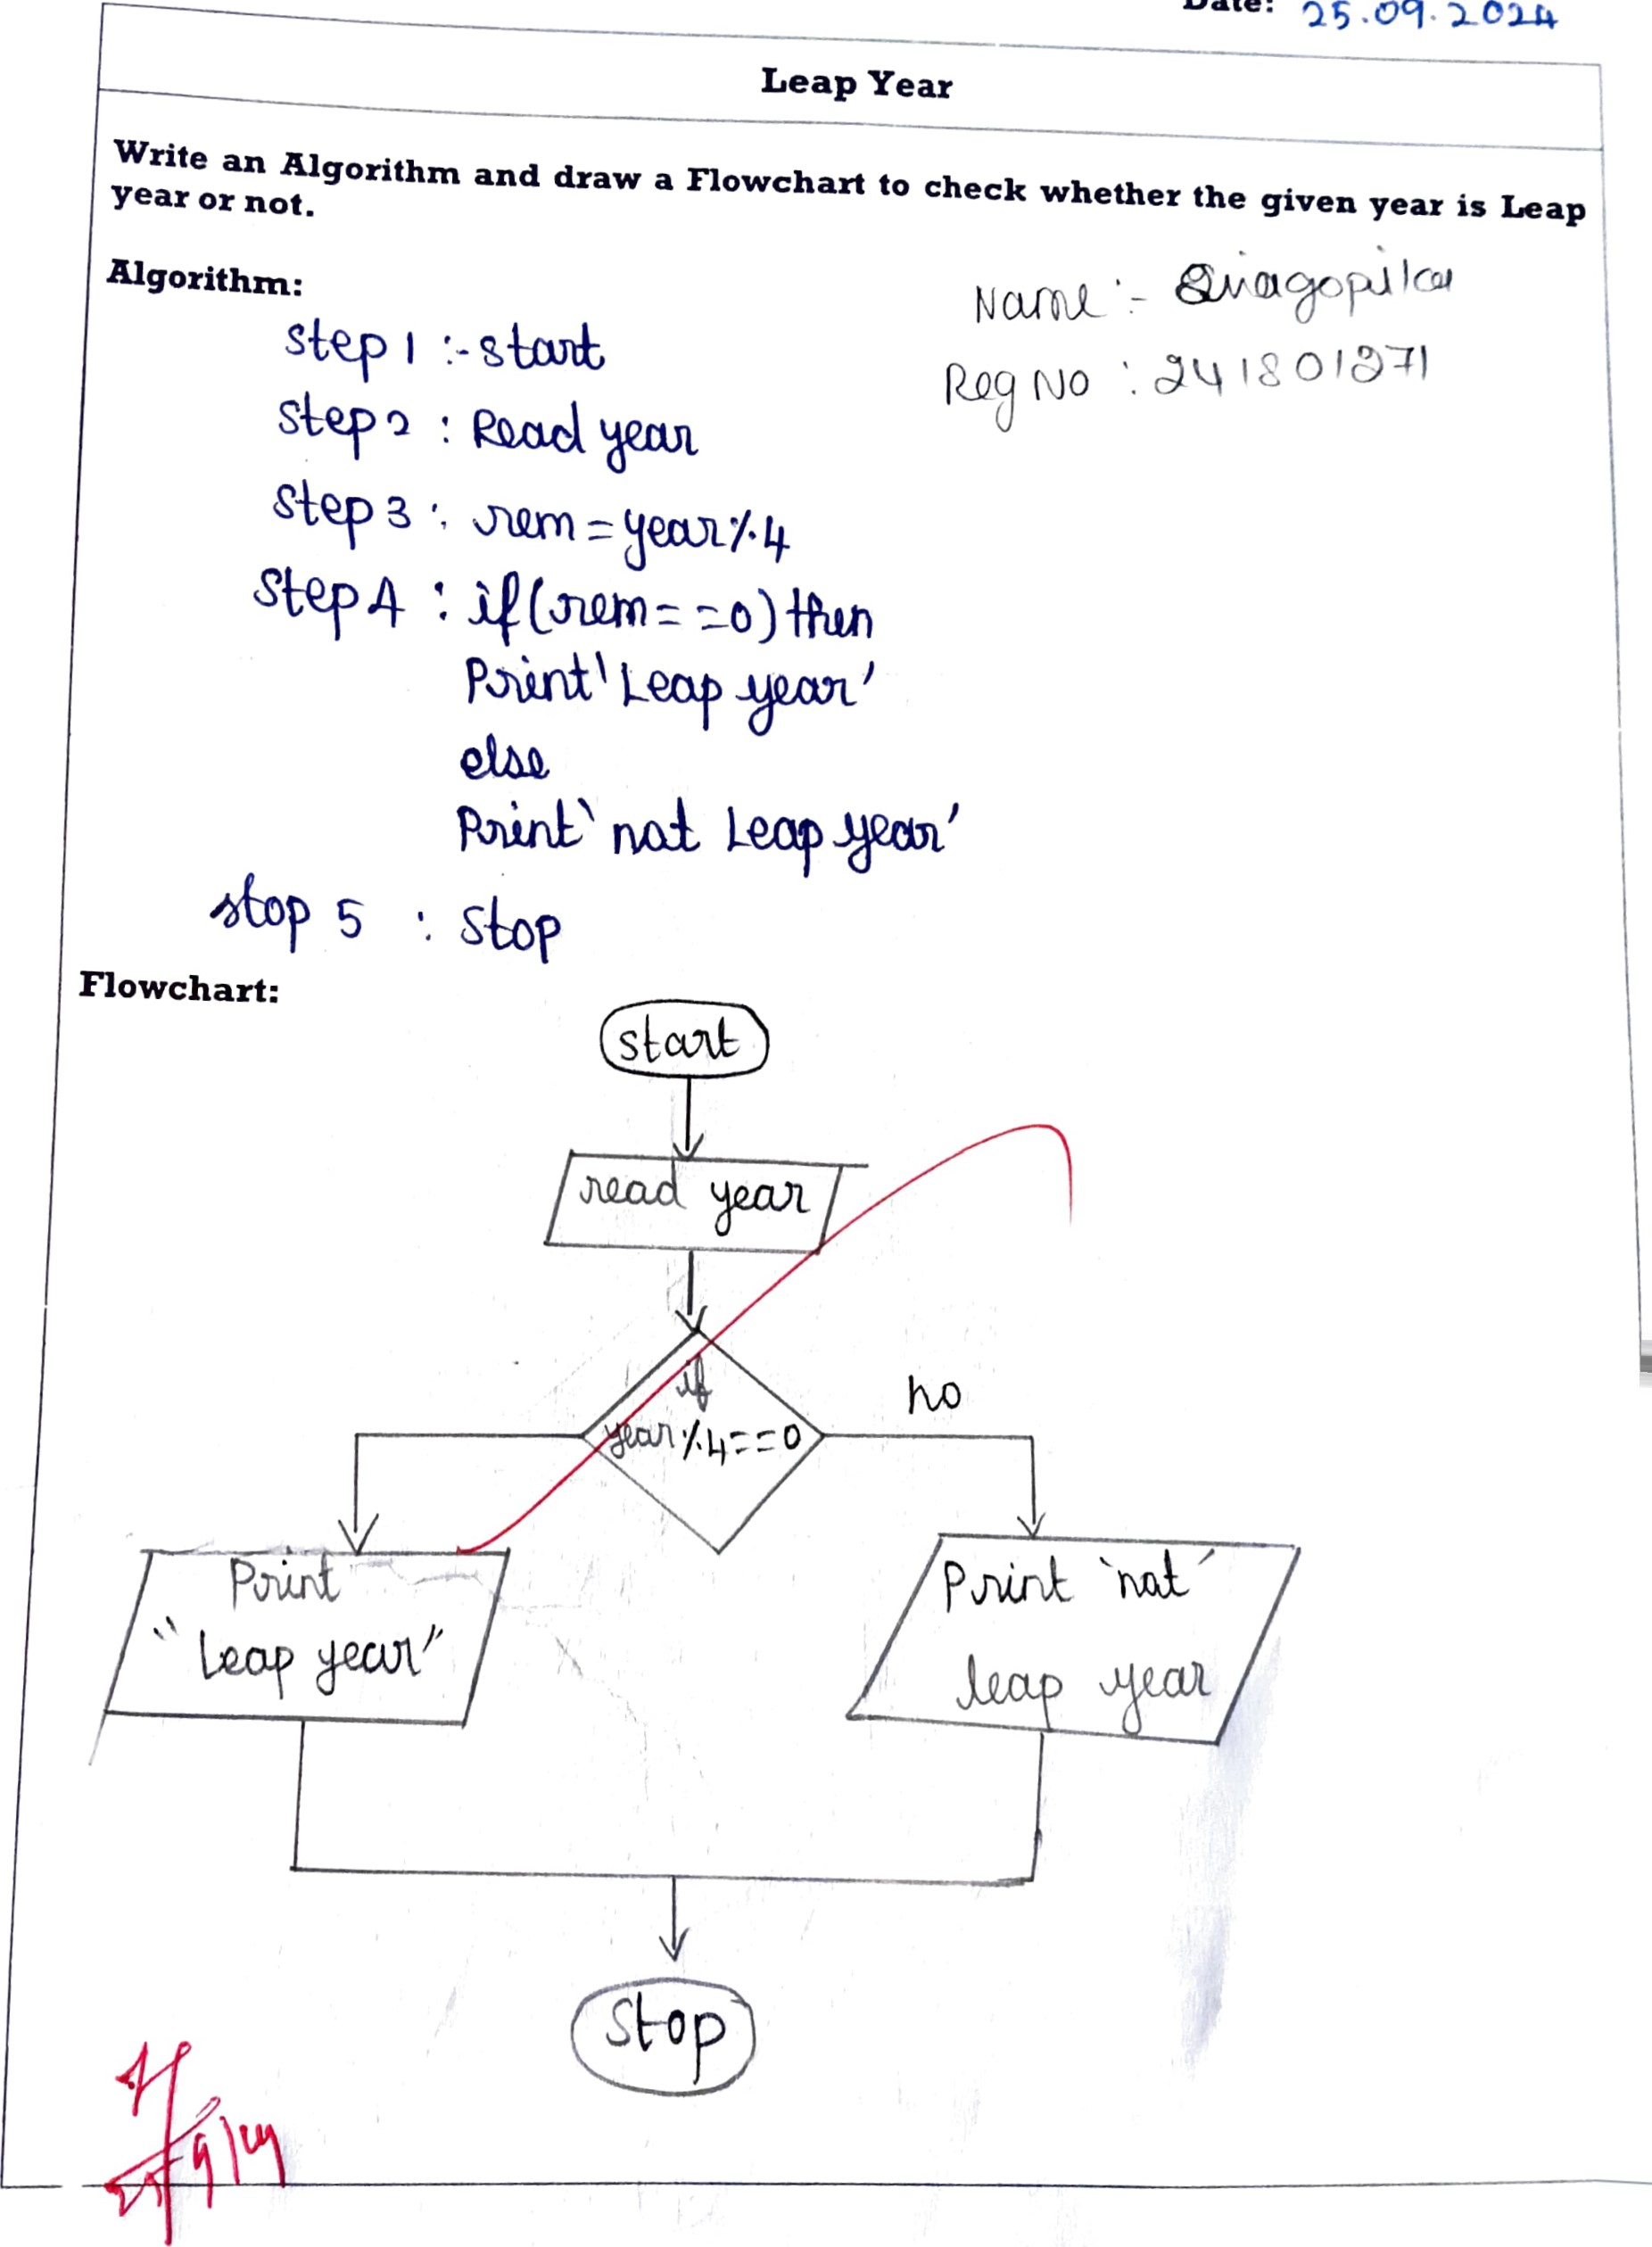 Date: 25.09.2024
Leap Year
Write an Algorithm and draw a Flowchart to check whether the given year is Leap
year or not.
Algorithm:
Name :-
Reg No : 241801271
step 1 :- start
step 2 : Read year
step 3 : rem = year % 4
step 4 : if (rem = = 0) then
Print 'Leap year'
else
Print 'not Leap year'
stop 5 : stop
Flowchart:
start
read year
if
year % 4 = = 0
no
Print
"Leap year"
Print 'not'
leap year
stop